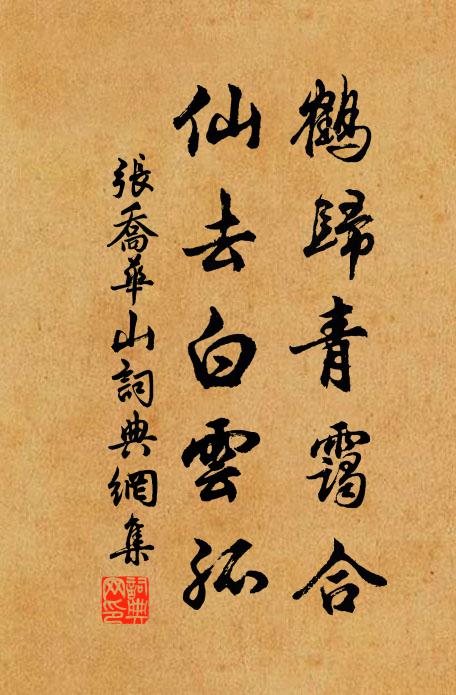 鶴歸青靄合
仙去白雲孤
張喬華山詞典網集
詞典網印